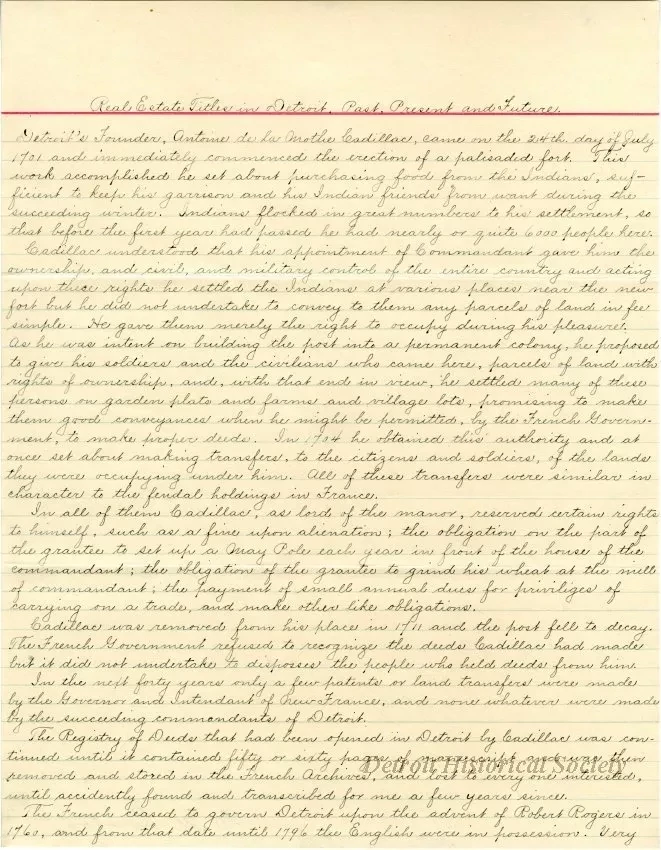 Real Estate Titles in Detroit, Past, Present and Future.
Detroit's Founder, Antoine de la Mothe Cadillac, came on the 24th. day of July
1701 and immediately commenced the erection of a palisaded fort. This
work accomplished he set about purchasing food from the Indians, suf-
ficient to keep his garrison and his Indian friends from want during the
succeeding winter. Indians flocked in great numbers to his settlement, so
that before the first year had passed he had nearly or quite 6000 people here.
Cadillac understood that his appointment of Commandant gave him the
ownership, and civil, and military control of the entire country and acting
upon these rights he settled the Indians at various places near the new
fort but he did not undertake to convey to them any parcels of land in fee
simple. He gave them merely the right to occupy during his pleasure.
As he was intent on building the post into a permanent colony, he proposed
to give his soldiers and the civilians who came here, parcels of land with
rights of ownership, and, with that end in view, he settled many of these
persons on garden plats and farms and village lots, promising to make
them good conveyances when he might be permitted, by the French Govern-
ment, to make proper deeds. In 1704 he obtained this authority and at
once set about making transfers, to the citizens and soldiers, of the lands
they were occupying under him. All of these transfers were similar in
character to the feudal holdings in France.
In all of them Cadillac, as lord of the manor, reserved certain rights
to himself, such as a fine upon alienation; the obligation on the part of
the grantee to set up a May Pole each year in front of the house of the
commandant; the obligation of the grantee to grind his wheat at the mill
of commandant; the payment of small annual dues for priviliges of
carrying on a trade, and make other like obligations.
Cadillac was removed from his place in 1711 and the post fell to decay.
The French Government refused to recognize the deeds Cadillac had made
but it did not undertake to disposses the people who held deeds from him.
In the next forty years only a few patents or land transfers were made
by the Governor and Intendant of New France, and none whatever were made
by the succeeding commandants of Detroit.
The Registry of Deeds that had been opened in Detroit by Cadillac was con-
tinued until it contained fifty or sixty pages of manuscript and was then
removed and stored in the French Archives, and lost to every one interested,
until accidently found and transcribed for me a few years since.
The French ceased to govern Detroit upon the advent of Robert Rogers in
1760, and from that date until 1796 the English were in possession. Very
Detroit Historical Society